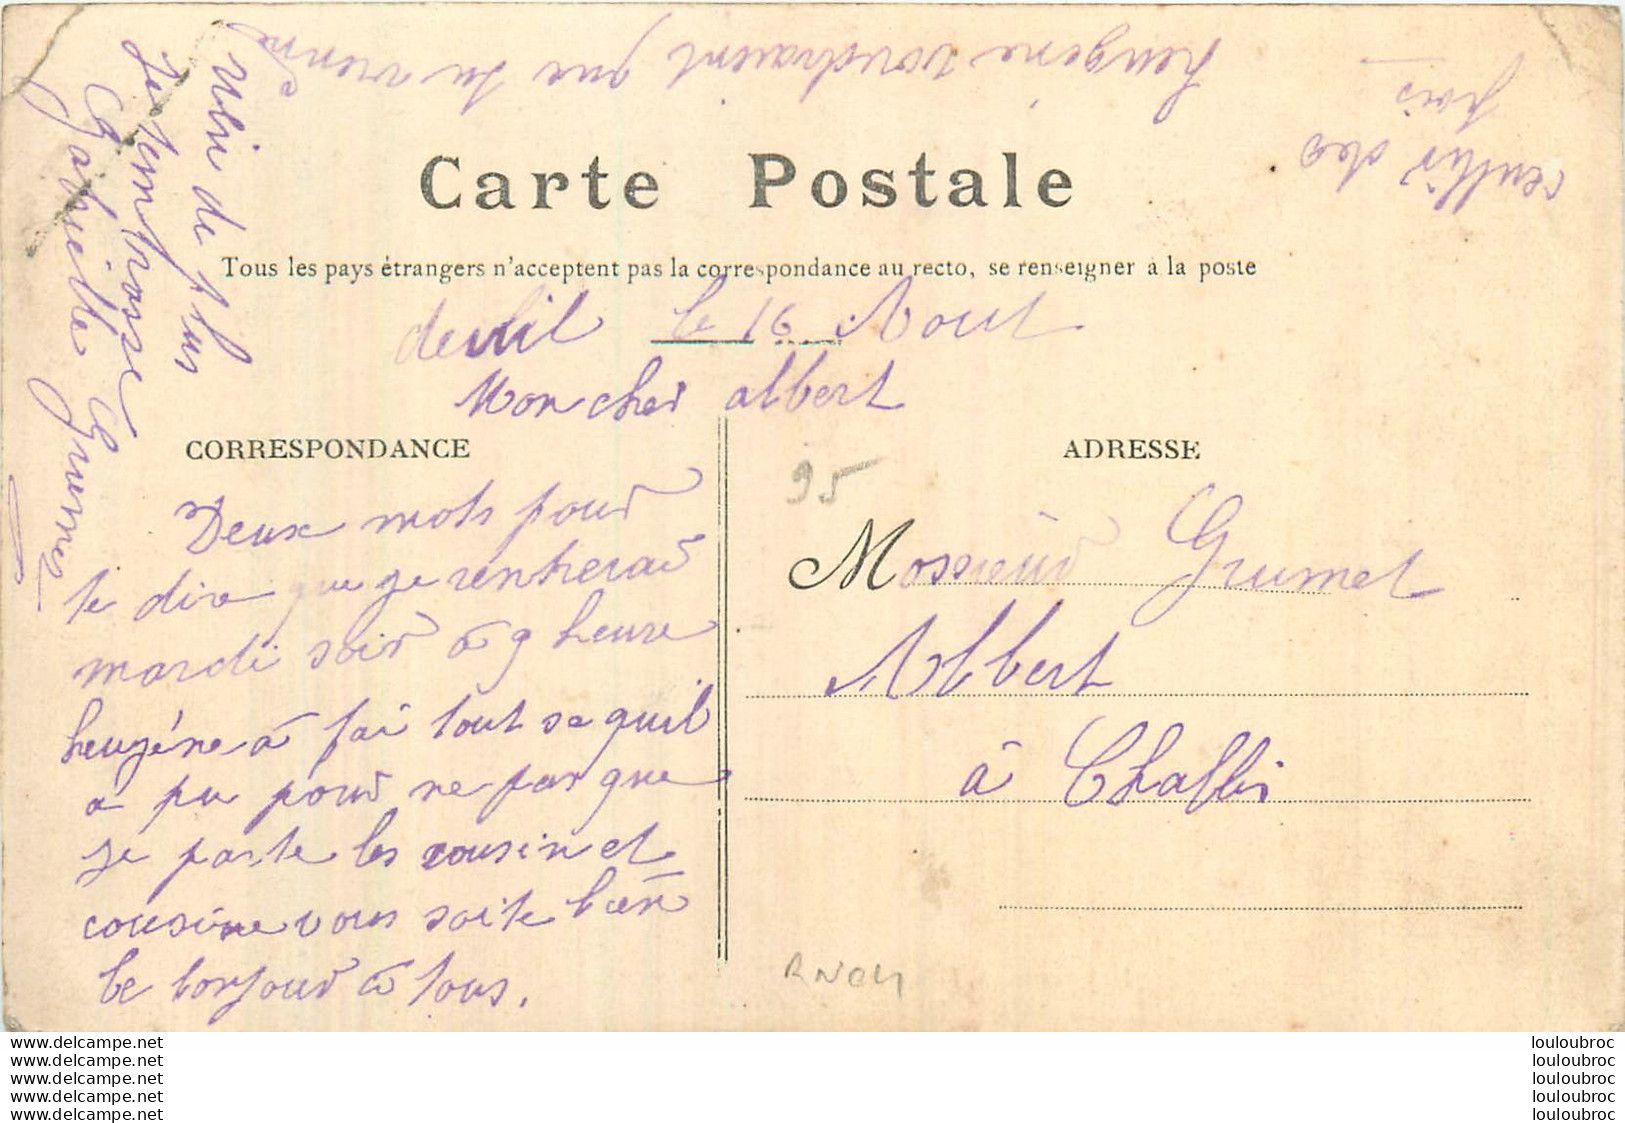 Carte Postale
Tous les pays étrangers n'acceptent pas la correspondance au recto, se renseigner à la poste
deuil le 16 Aout
Mon cher albert
CORRESPONDANCE
Deux mots pour
te dire que je rentrerai
mardi soir à 9 heure
heugéne à fai tout se quil
a pu pour ne pas que
je parte les cousin et
cousine vous soite bien
le bonjour à tous.
Rien de plus
Je tembrasse
Gabrielle Grumet
heugene voudraient que tu vienne
ceullir des
pois
ADRESSE
95
Monsieur Grumet
Albert
à Chablis
RNO4
www.delcampe.net louloubroc
www.delcampe.net louloubroc
www.delcampe.net louloubroc
www.delcampe.net louloubroc
www.delcampe.net louloubroc